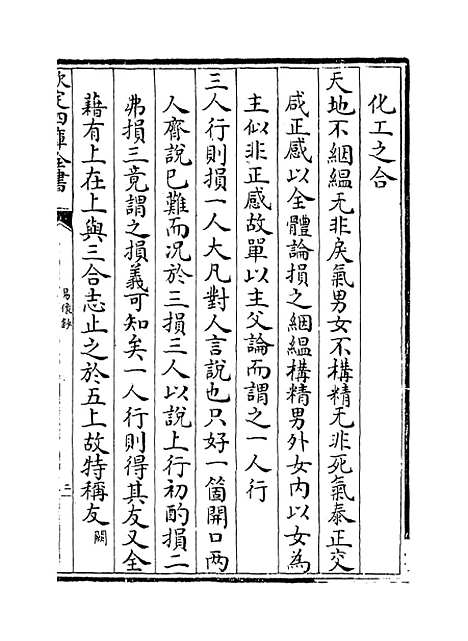 化工之合
天地不絪緼无非戾氣男女不構精无非死氣泰正交
咸正感以全體論損之絪緼構精男外女内以女為
主似非正感故單以主父論而謂之一人行
三人行則損一人大凡對人言說也只好一箇開口两
人齊說已難而况於三損三人以說上行初酌損二
弗損三竟謂之損義可知矣一人行則得其友又全
藉有上在上與三合志止之於五上故特稱友闕
欽定四庫全書
易像鈔